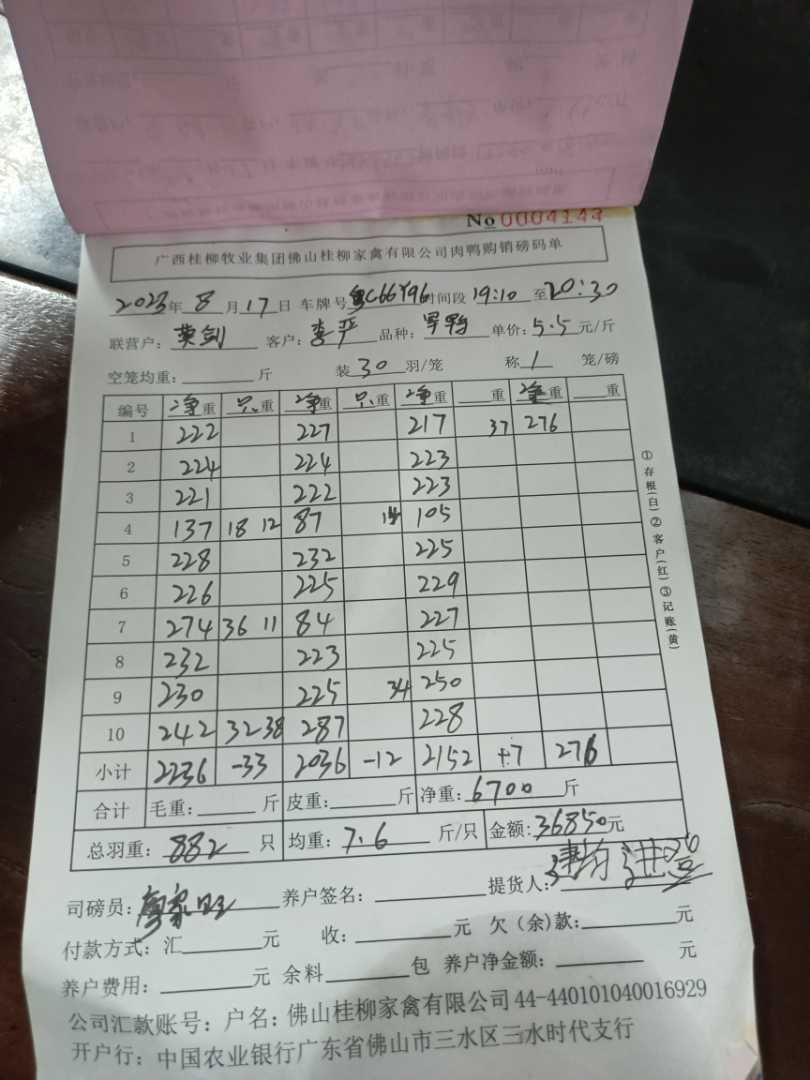 No 0004144
广西桂柳牧业集团佛山桂柳家禽有限公司肉鸭购销磅码单
2023年 8 月 17 日 车牌号 粤C66Y96 时间段 19:10 至 20:30
联营户: 剑 客户: 李严 品种: 单价: 5.5 元/斤
空笼均重: 斤 装 30 羽/笼 称 1 笼/磅
编号 净重 只重 净重 只重 净重 重 净重 重
1 222 227 217 37 276
2 224 224 223
3 221 222 223
4 137 18 12 87 105
5 228 232 225
6 226 225 229
7 274 36 11 84 227
8 232 223 225
9 230 225 34 250
10 242 32 38 287 228
小计 2236 -33 2036 -12 2152 +7 276
合计 毛重: 斤 皮重: 斤 净重: 6700 斤
总羽重: 882 只 均重: 7.6 斤/只 金额: 36850元
司磅员: 廖家旺 养户签名: 提货人:
付款方式: 汇 元 收: 元 欠(余)款: 元
养户费用: 元 余料 包 养户净金额: 元
公司汇款账号: 户名: 佛山桂柳家禽有限公司 44-440101040016929
开户行: 中国农业银行广东省佛山市三水区三水时代支行
①存根(白)②客户(红)③记账(黄)